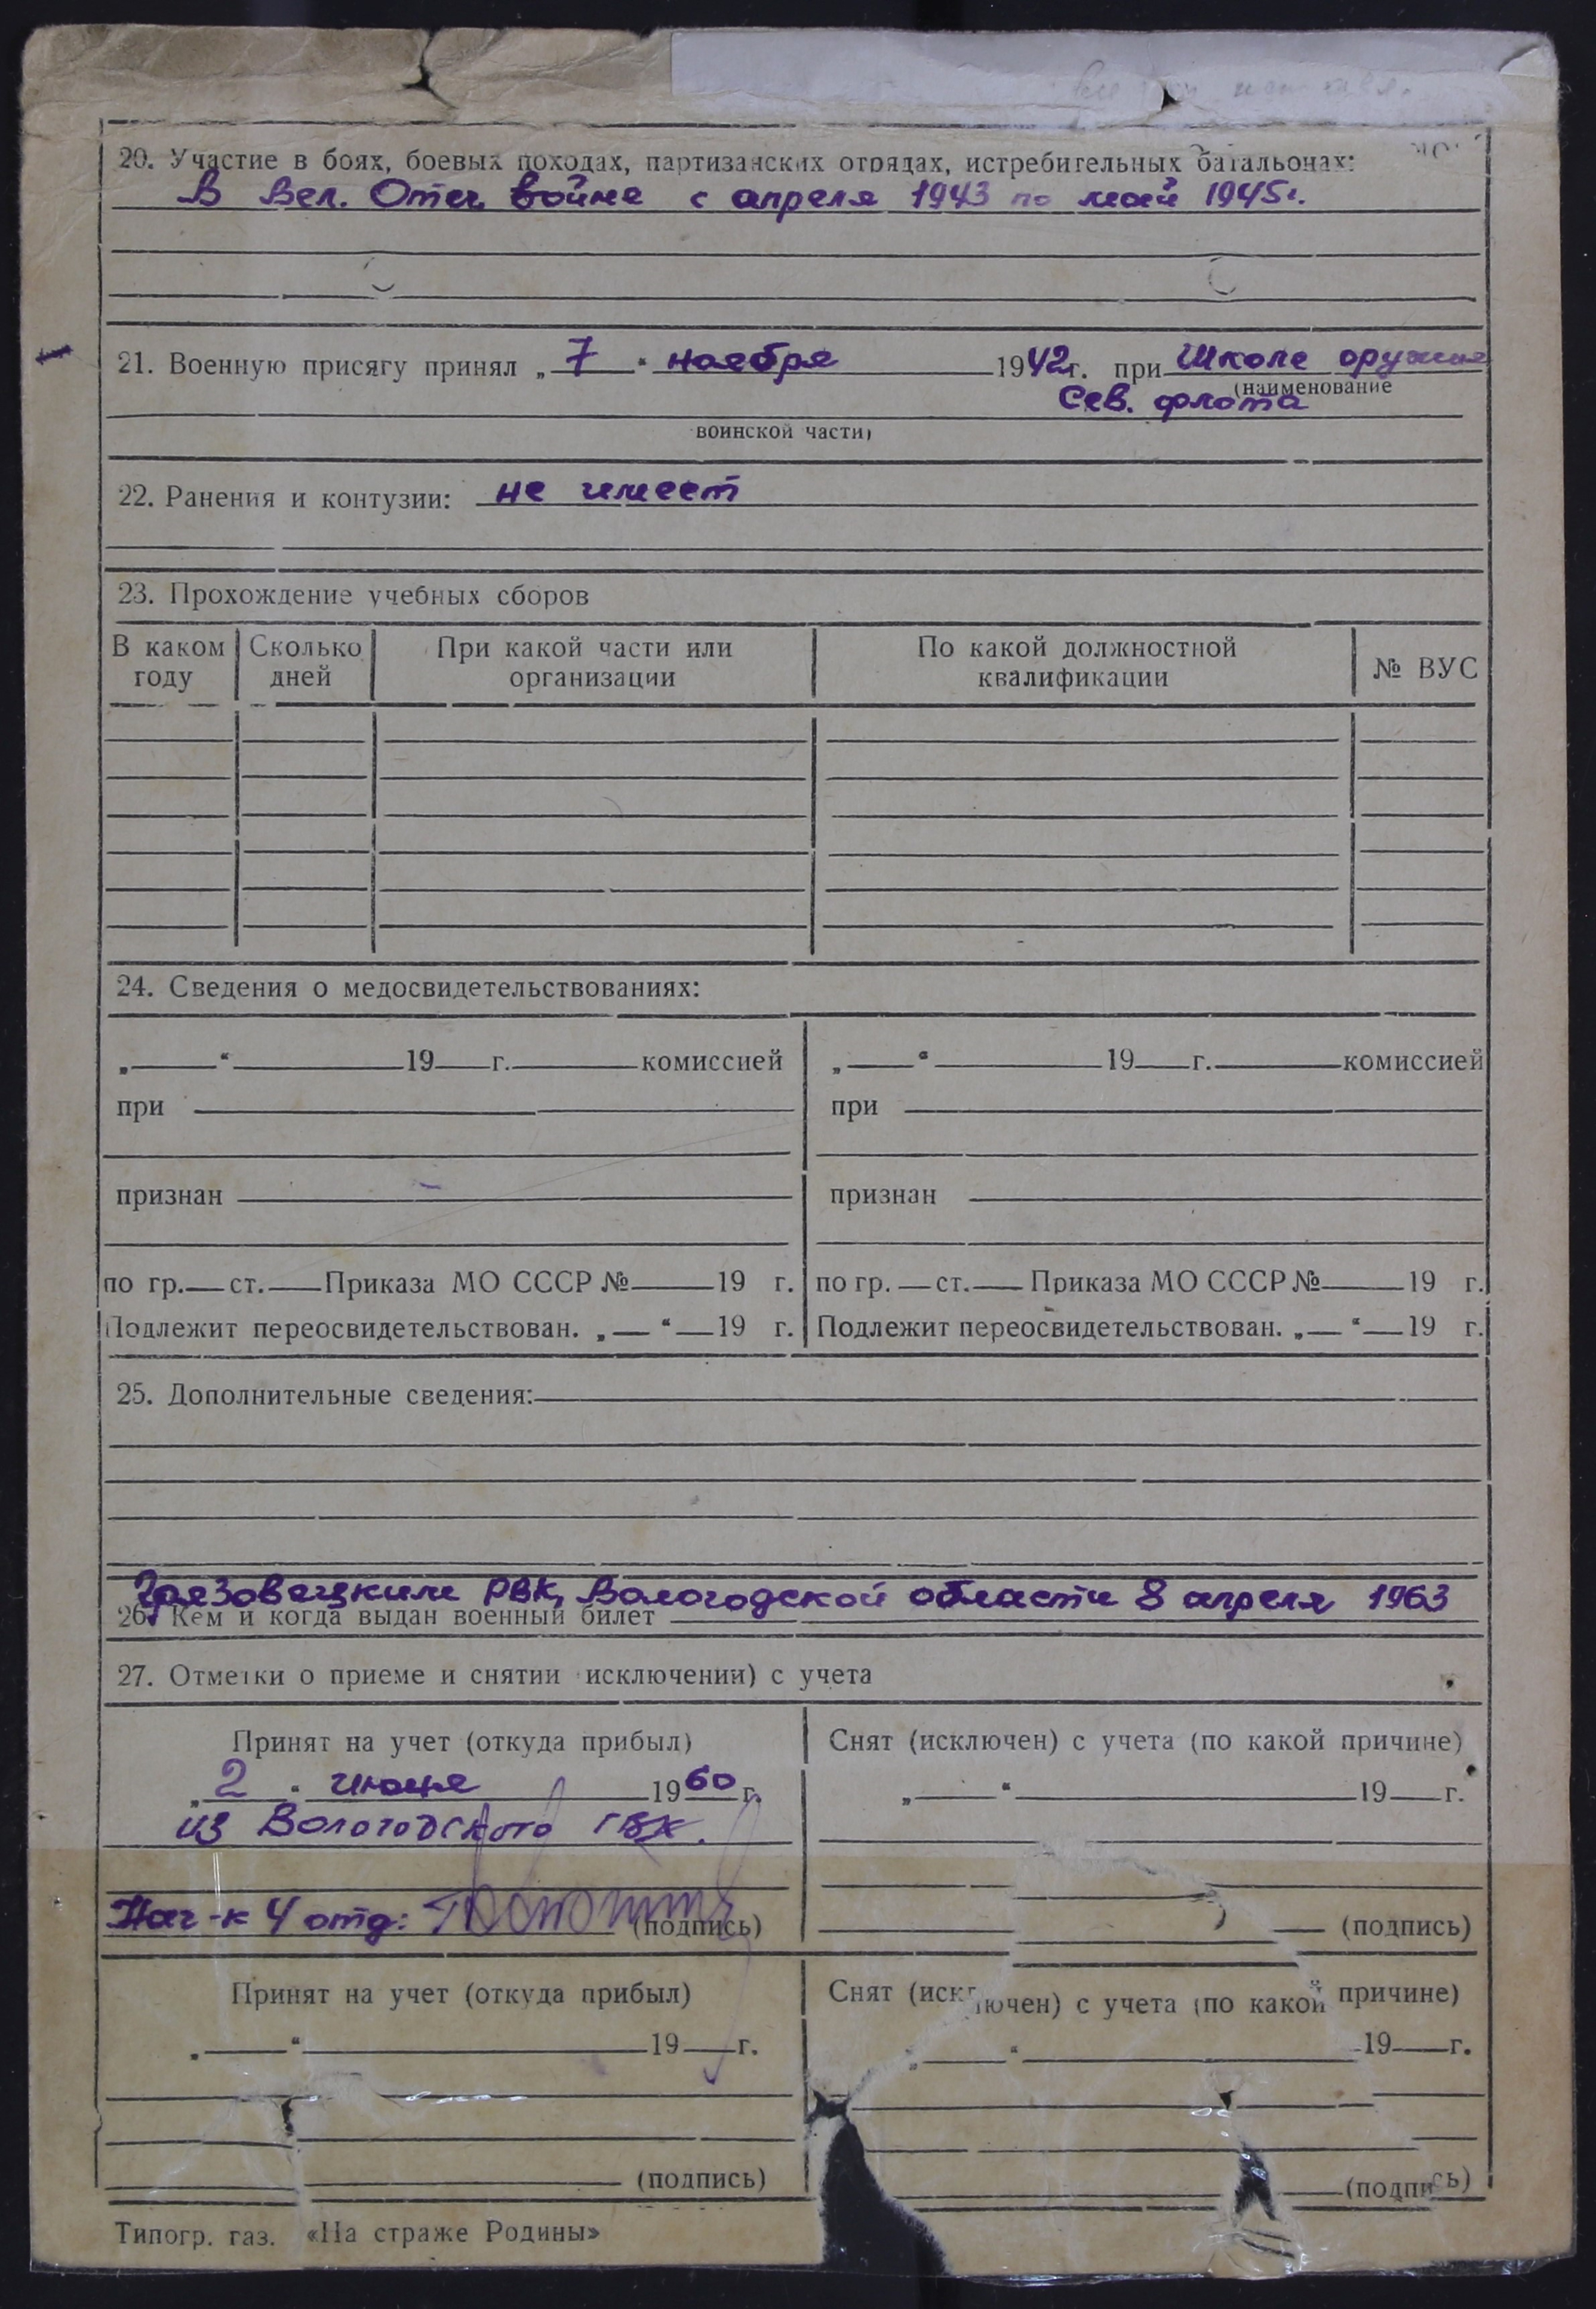 20. Участие в боях, боевых походах, партизанских отрядах, истребительных батальонах:
В Вел. Отеч. войне с апреля 1943 по май 1945г.
21. Военную присягу принял „ 7 “ ноября 1942г. при Школе оружия
(наименование
Сев. флота
воинской части)
22. Ранения и контузии: не имеет
23. Прохождение учебных сборов
В каком году Сколько дней При какой части или организации По какой должностной квалификации № ВУС
24. Сведения о медосвидетельствованиях:
„ “ 19 г. комиссией „ “ 19 г. комиссией
при при
признан признан
по гр. ст. Приказа МО СССР № 19 г. по гр. ст. Приказа МО СССР № 19 г.
Подлежит переосвидетельствован. „ “ 19 г. Подлежит переосвидетельствован. „ “ 19 г.
25. Дополнительные сведения:
Грязовецким РВК, Вологодской области 8 апреля 1963
26. Кем и когда выдан военный билет
27. Отметки о приеме и снятии исключении) с учета
Принят на учет (откуда прибыл) Снят (исключен) с учета (по какой причине)
„ 2 “ июня 1960 г. „ “ 19 г.
из Вологодского ГВК.
Нач-к 4 отд: (подпись) (подпись)
Принят на учет (откуда прибыл) Снят (исключен) с учета (по какой причине)
„ “ 19 г. „ “ 19 г.
(подпись) (подпись)
Типогр. газ. «На страже Родины»